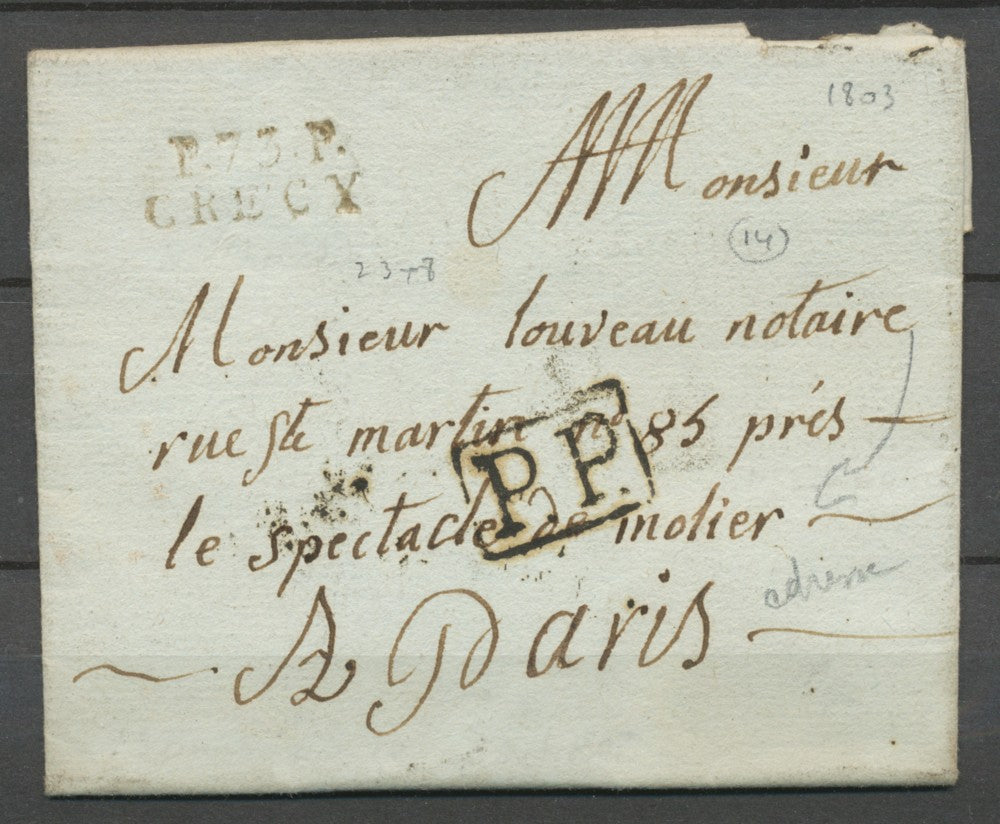 1803
P.73.P.
CRECY
Monsieur
(14)
23+8
Monsieur louveau notaire
rue St martin n° 85 prés
le spectacle de molier
P.P.
adresse
A Paris